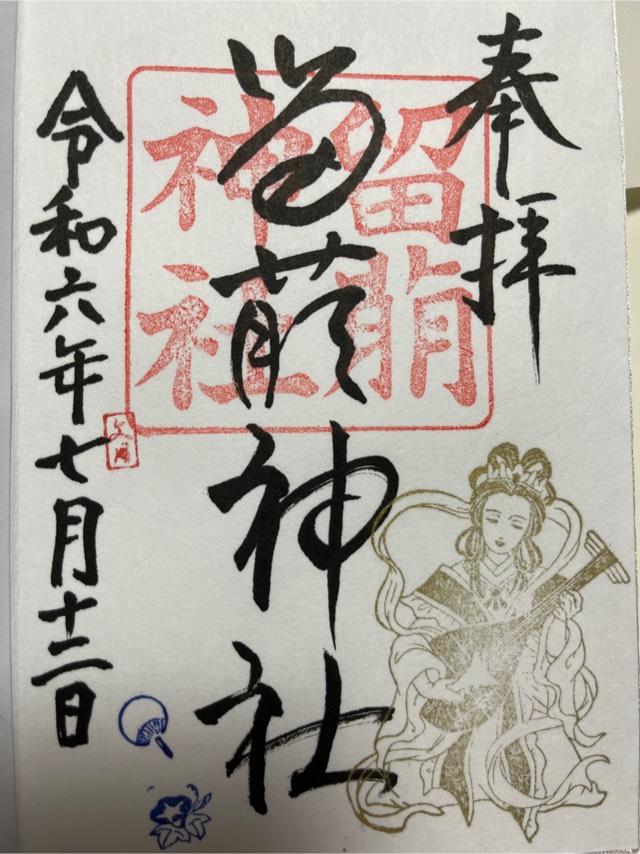 奉拝
留萠神社
留萠
神社
令和六年七月十二日